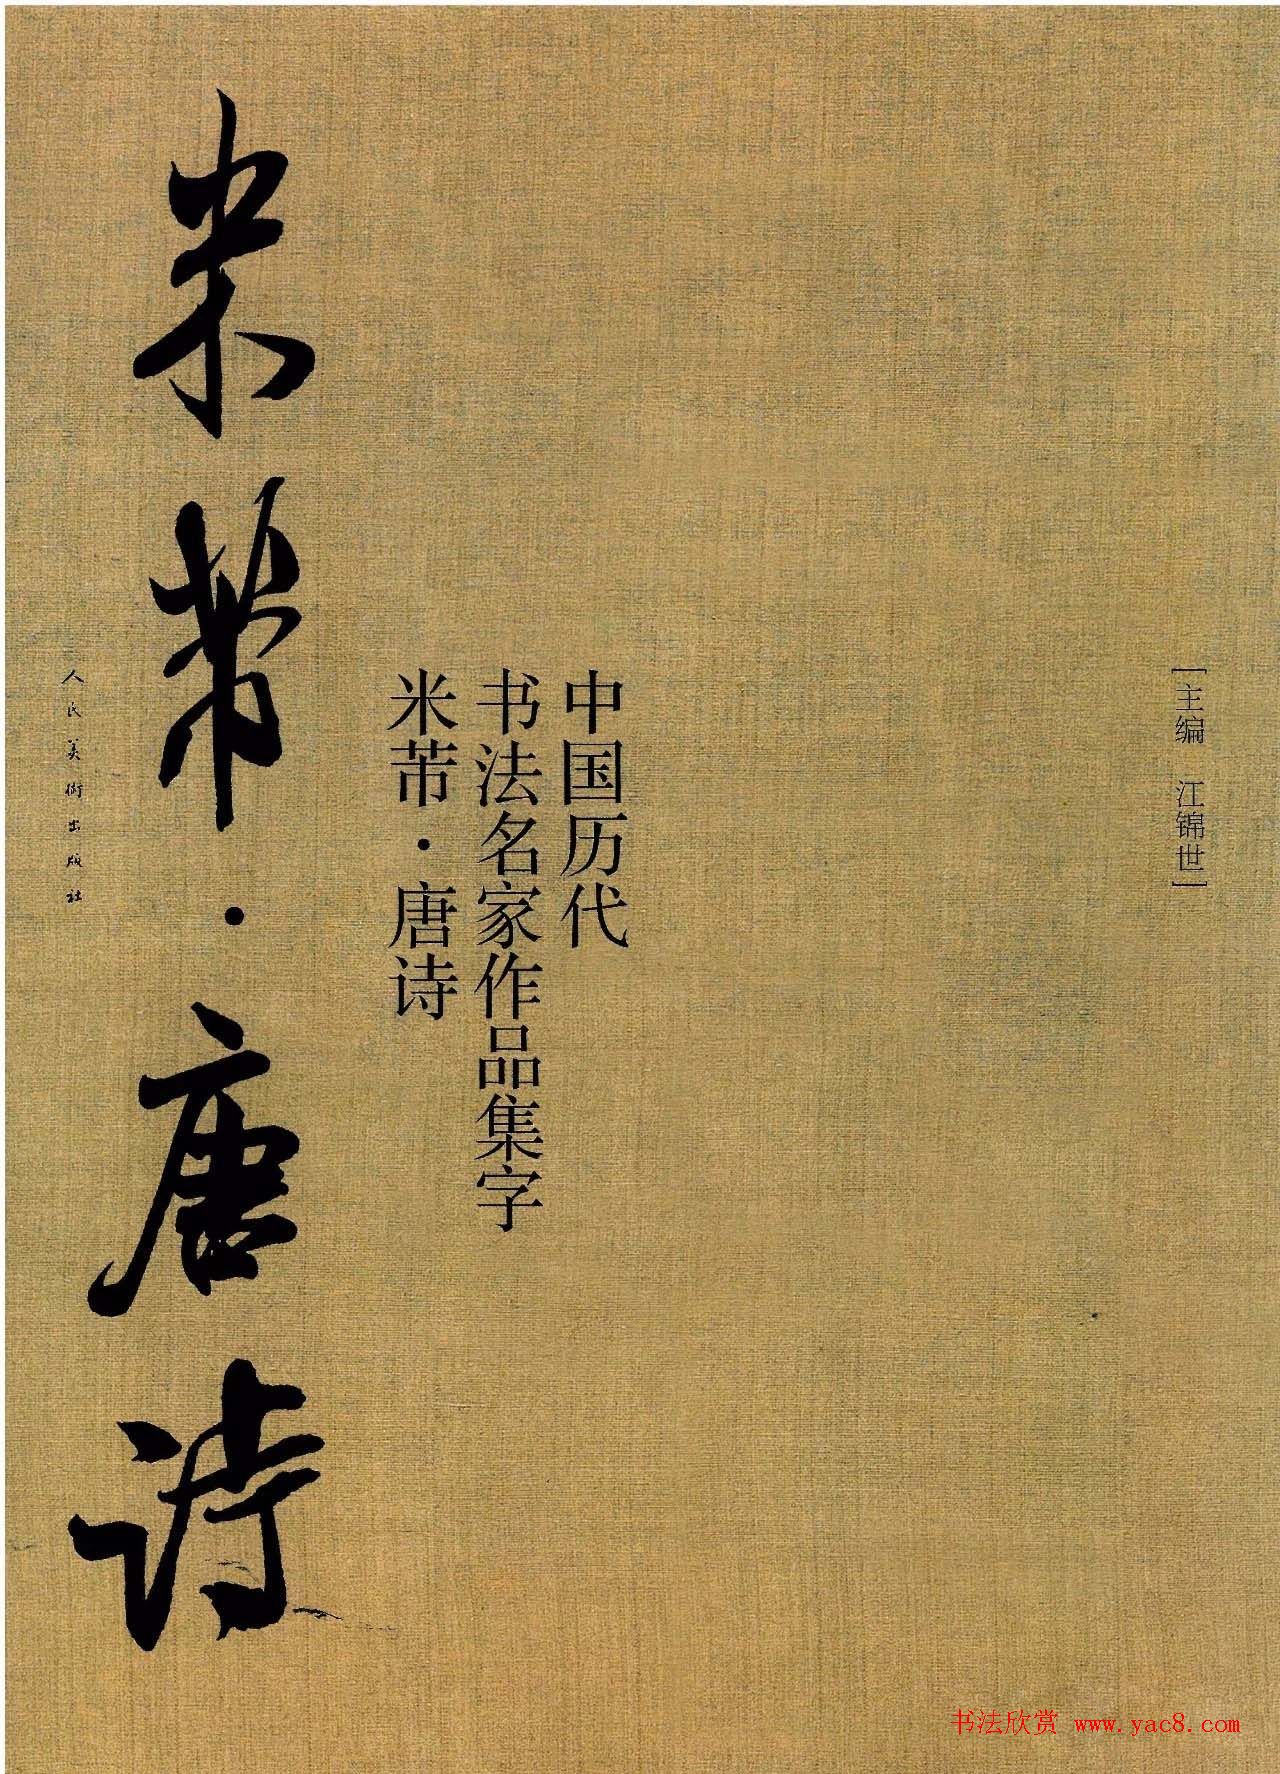 [主编 江锦世]
中国历代
书法名家作品集字
米芾·唐诗
米芾·唐诗
人民美術出版社
书法欣赏 www.yac8.com